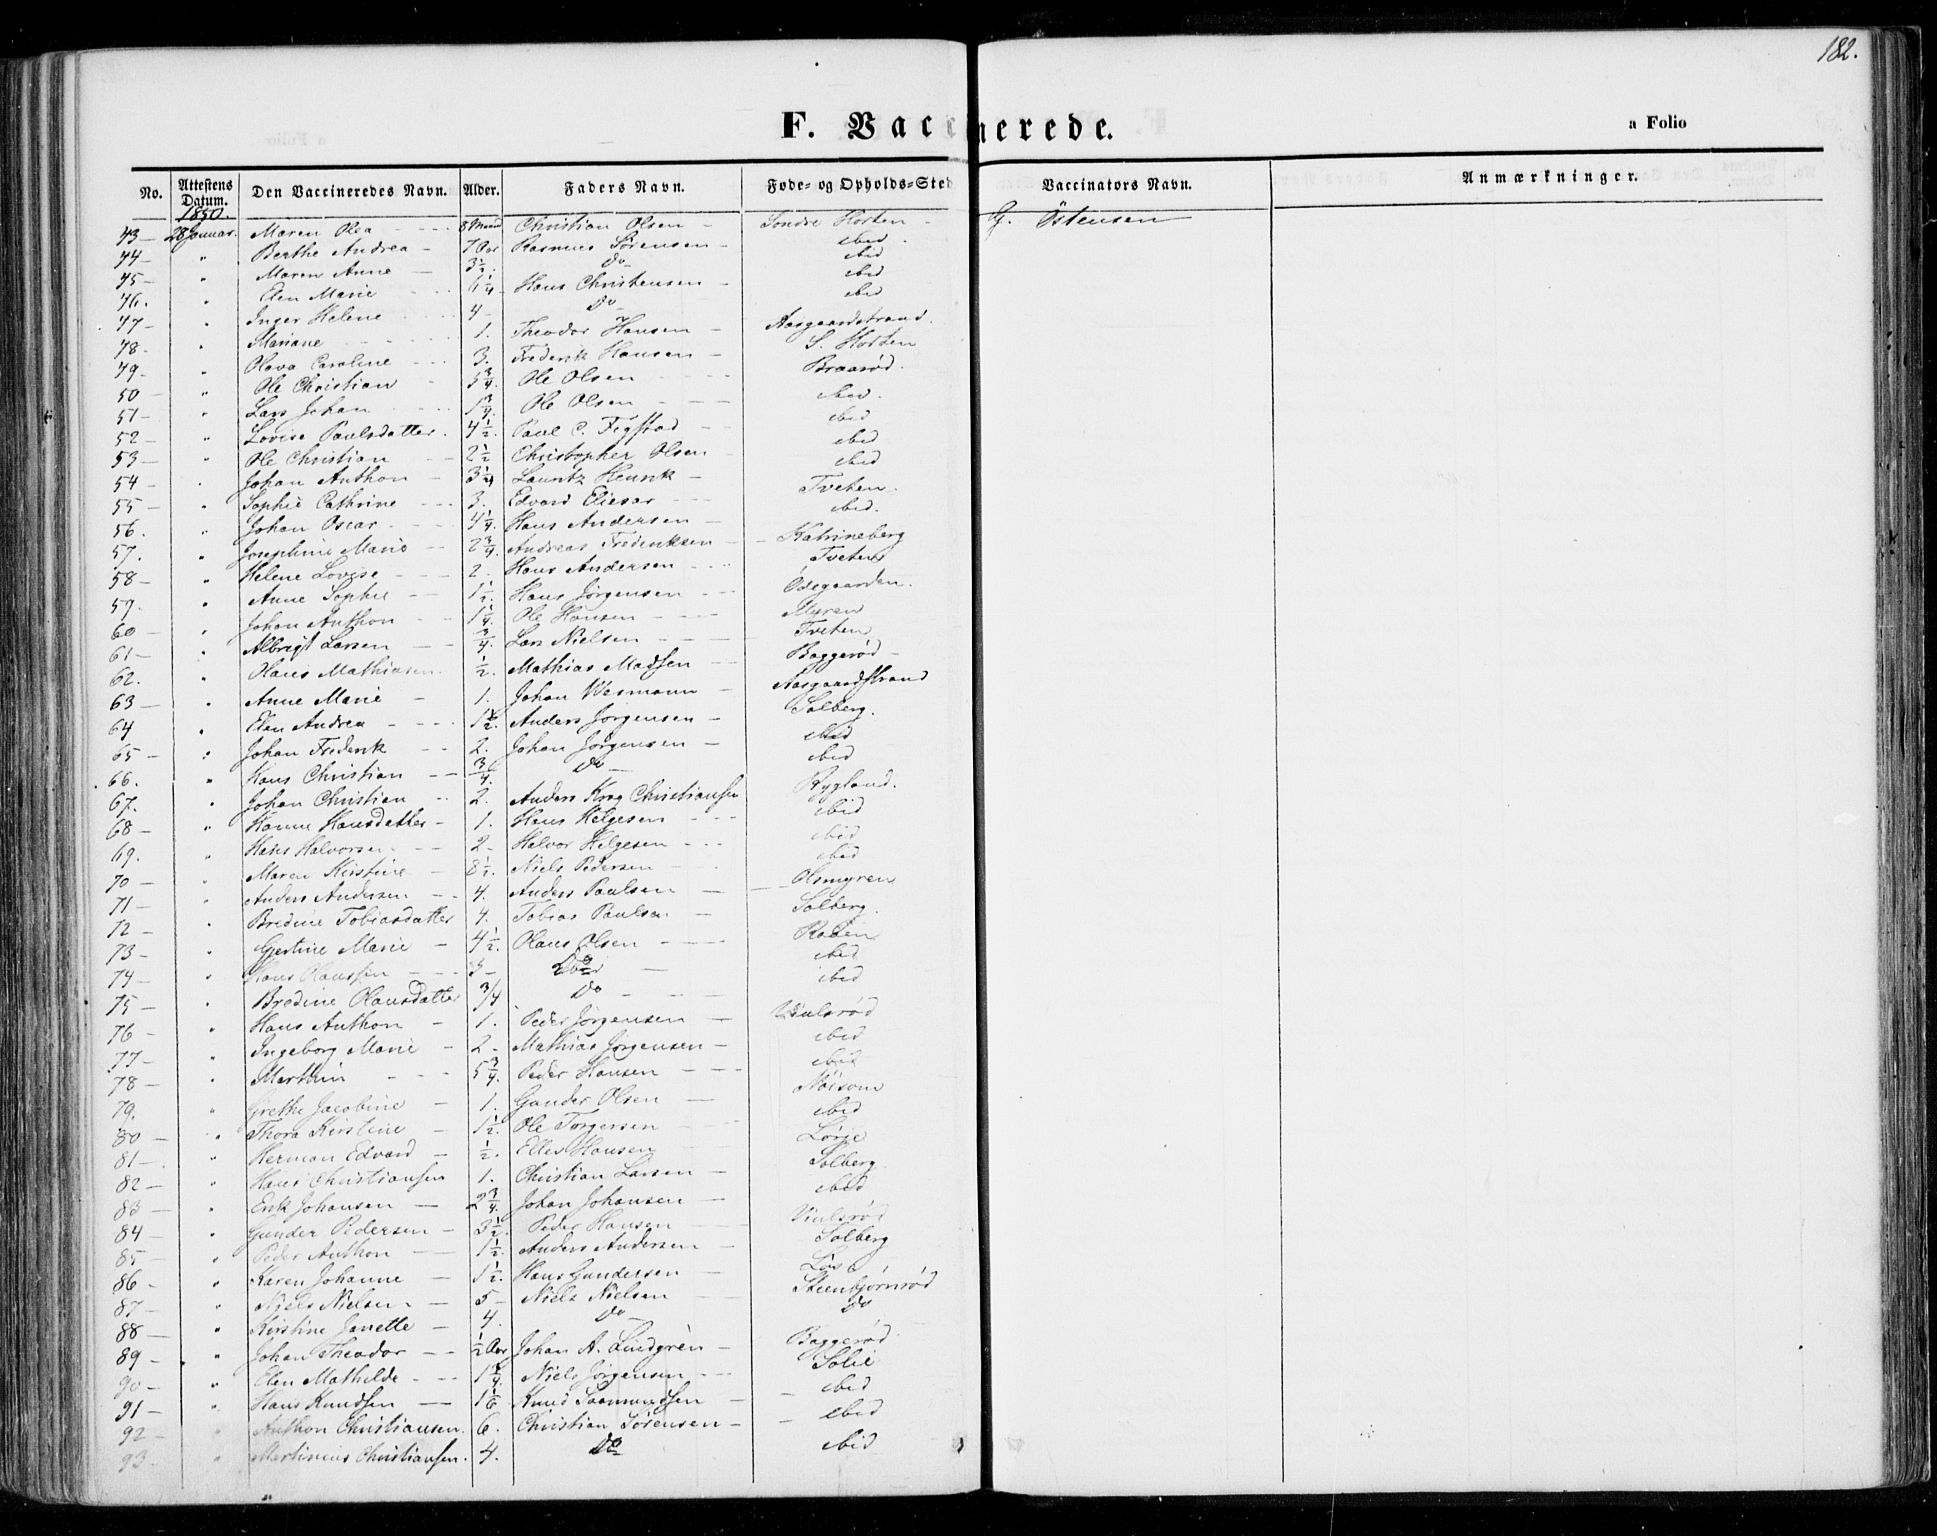 182.
F. Vaccinerede.
a Folio
No. Attestens Datum. Den Vaccineredes Navn. Alder. Faders Navn. Føde- og Opholds-Sted Vaccinators Navn. Anmærkninger.
1850.
43 — 28 Januar. Maren Olea 8 Maand Christian Olsen — Søndre Horten — G. Östensen
44 — " Berthe Andrea — 7 Aar Rasmus Sørensen — ibid.
45 — " Maren Anne — 3 1/2. Do ibid
46. " Elen Marie 6 1/4 Hans Christensen — ibid
47 — " Inger Helene 4 — Do — ibid
48. " Mariane 1. Theodor Hansen — Aasgaardstrand.
49 — " Olava Caroline 3. Frederik Hansen — S. Horten
50 — " Ole Christian — 5 3/4. Ole Olsen Braarød.
51 — " Lars Johan 1 3/4. Ole Olsen ibid.
52 — " Lovise Paulsdatter. 4 1/2. Paul C. Figstad ibid
53 — " Ole Christian — 2 1/2 Christopher Olsen — ibid
54 — " Johan Anthon — 3 1/4 Lauritz Henrik — ibid
55 — " Sophie Cathrine 3. Edvard Eliesar Tveten.
56. " Johan Oscar 4 1/4. Hans Andersen — ibid.
57. " Josephine Marie 2 3/4. Andreas Frederiksen — Katrineberg
58 — " Helene Lovise 2. Hans Andersen Tveten
59. " Anne Sophie — 1 1/2. Hans Jørgensen Ødegaarden.
60 — " Johan Anthon 1 1/4. Ole Hansen Myren
61 — " Albrigt Larsen — 3/4. Lars Nielsen Tveten
62. " Olaus Mathiasen. 1/2. Mathias Madsen Baggerød —
63 — " Anne Marie — 1. Johan Wesmann — Aasgaardstrand
64 " Elen Andrea 1 1/2. Anders Jørgensen — Solberg.
65 — " Johan Frederik 2. Johan Jørgensen — ibid
66. " Hans Christian — 3/4. Do — ibid
67. " Johan Christian 2. Anders Krog Christiansen Rygland.
68 — " Hanne Hansdatter — 1. Hans Helgesen ibid
69. " Hans Halvorsen 2 — Halvor Helgesen ibid
70 — " Maren Kirstine — 8 1/2. Niels Pedersen ibid
71 — " Anders Andersen — 4. Anders Paulsen — Osmyren
72 — " Bredine Tobiasdatter 4. Tobias Paulsen — Solberg.
73 — " Gjertine Marie — 4 1/2. Olaus Olsen
74 — " Hans Olaussen 3 — Do — ibid
75 — " Bredine Olausdatter 3/4 Do ibid
76 — " Hans Anthon — 1. Peder Jørgensen — Viulsrød
77 — " Ingeborg Marie — 2 — Mathias Jørgensen — ibid
78 — " Marthin 5 3/4. Peder Hansen ibid
79. " Grethe Jacobine — 1. Gunder Olsen —
80 — " Thora Kirstine — 1 1/2. Ole Torgersen ibid
81 — " Herman Edvard — 1/2. Elles Hansen
82 — " Hans Christiansen 1. Christian Larsen — Solberg.
83 — " Erik Johansen — 2 3/4. Johan Johansen — ibid
84 — " Gunder Pedersen — 3 1/2. Peder Hansen — Viulsrød
85 — " Peder Anthon — 1 1/2. Anders Andersen — Solberg
86 — " Karen Johanne — 1 1/2. Hans Gundersen —
87 — " Niels Nielsen — 5 — Niels Nielsen — Steenbjørnrød
88 — " Kirstine Janette — 4. Do — Do
89 — " Johan Theodor — 1/2 Aar Johan A. Lindgren — Baggerød
90 — " Elen Mathilde 1 3/4. Niels Jørgensen Solie
91 — " Hans Knudsen — 1 1/6 Knud Saamundsen — ibid
92 — " Anthon Christiansen. 6. Christian Sørensen — ibid
93 — " Martinius Christiansen. 4. Do ibid